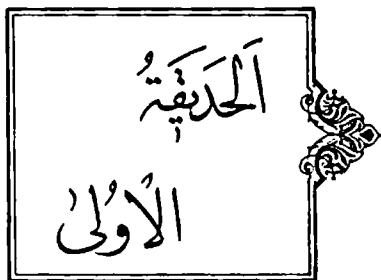 اَلحَديٖقَةُ
الْاُولٰى